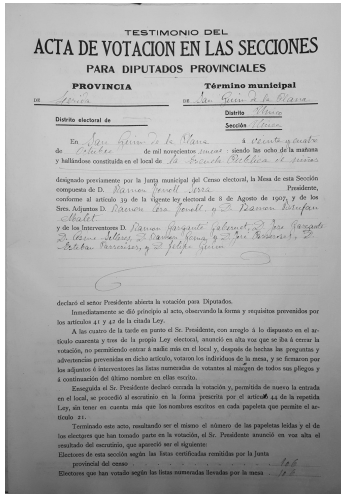 TESTIMONIO DEL
ACTA DE VOTACION EN LAS SECCIONES
PARA DIPUTADOS PROVINCIALES
PROVINCIA
DE Lérida
Término municipal
DE San Guim de la Plana
Distrito electoral de
Distrito Unico
Sección Unica
En San Guim de la Plana á veinte y cuatro
de Octubre de mil novecientos once; siendo las ocho de la mañana
y hallándose constituída en el local de la Escuela Pública de niños
designado previamente por la Junta municipal del Censo electoral, la Mesa de esta Sección
compuesta de D. Ramon Serra Presidente,
conforme al artículo 39 de la vigente ley electoral de 8 de Agosto 1907, y de los
Sres. Adjuntos D. Ramon y D. Ramon
y de los Interventores D. Ramon D. José
D. D. Ramon y D. José D.
Esteban y D. Felipe
declaró el señor Presidente abierta la votación para Diputados.
Inmediatamente se dió principio al acto, observando la forma y requisitos prevenidos por los
artículos 41 y 42 de la citada Ley.
A las cuatro de la tarde en punto el Sr. Presidente, con arreglo á lo dispuesto en el ar-
tículo cuarenta y tres de la propia Ley electoral, anunció en alta voz que se iba á cerrar la
votación, no permitiendo entrar á nadie más en el local y después de hechas las preguntas y
advertencias prevenidas en dicho artículo, votaron los individuos de la mesa, y se firmaron por
los adjuntos é interventores las listas numeradas de votantes al margen de todos sus pliegos y
á continuación del último nombre en ellas escrito.
Enseguida el Sr. Presidente declaró cerrada la votación y, permitida de nuevo la entrada
en el local, se procedió al escrutinio en la forma prescrita por el artículo 44 de la repetida
Ley, sin tener en cuenta más que los nombres escritos en cada papeleta que permite el ar-
tículo 21.
Terminado este acto, resultando ser el mismo el número de las papeletas leídas y el de
los electores que han tomado parte en la votación, el Sr. Presidente anunció en voz alta el
resultado del escrutinio, que apareció ser el siguiente:
Electores del censo según las listas certificadas remitidas por la Junta
provincial del censo 106
Electores que han votado según las listas numeradas llevadas por la mesa 106